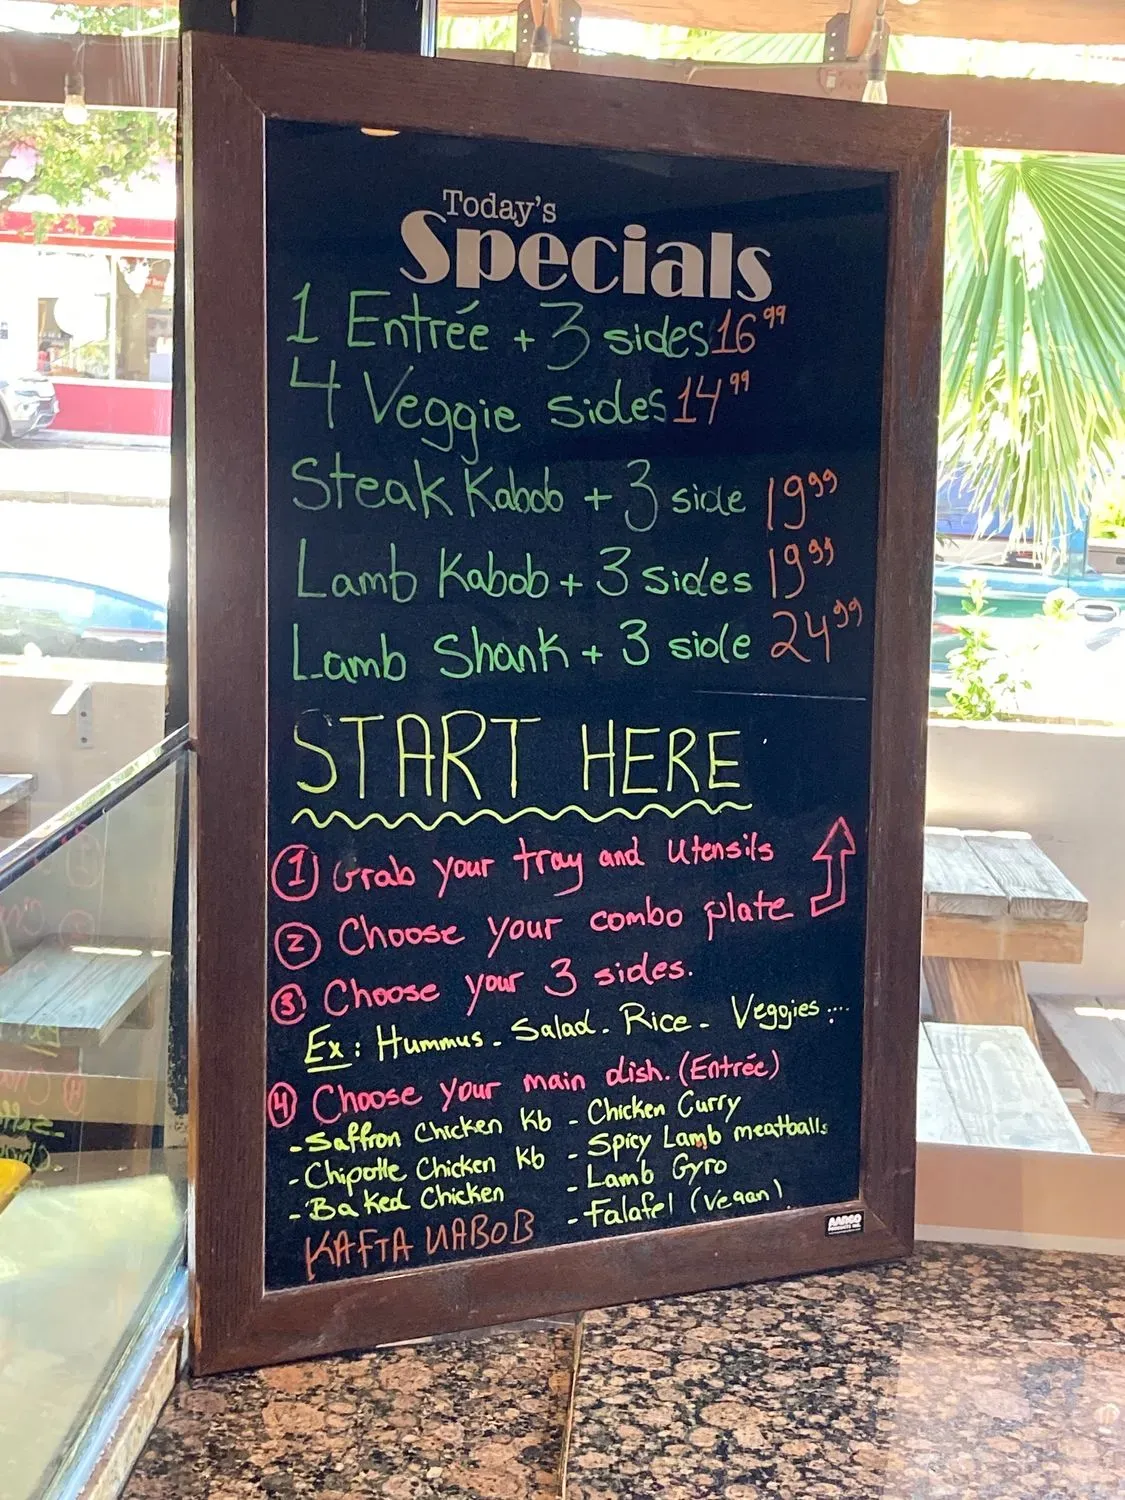 Today's
Specials
1 Entrée + 3 sides 16⁹⁹
4 Veggie sides 14⁹⁹
Steak Kabob + 3 side 19⁹⁹
Lamb Kabob + 3 sides 19⁹⁹
Lamb Shank + 3 side 24⁹⁹
START HERE
① Grab your tray and Utensils
② Choose your combo plate
③ Choose your 3 sides.
Ex: Hummus - Salad - Rice - Veggies ....
④ Choose your main dish. (Entrée)
- Saffron Chicken Kb
- Chipotle Chicken Kb
- Baked Chicken
KAFTA KABOB
- Chicken Curry
- Spicy Lamb meatballs
- Lamb Gyro
- Falafel (Vegan)
AARCO
PRODUCTS INC.